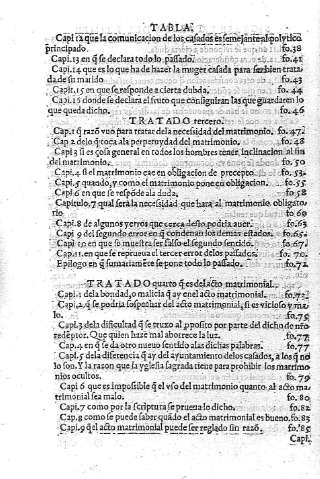 TABLA.
Capi 12 que la comunicacion de los casados es semejante al polytico
principado. fo.38
Capi.13 en q̃ se declara todo lo passado. fo.41
Capi.14 que es lo que ha de hazer la muger casada para ser bien trata
da de su marido fo.43
Capit.15 en que se responde a cierta dubda. fo. 44
Capi.16 donde se declara el fruto que consiguiran las que guardaren lo
que queda dicho. fo. 46
TRATADO tercero.
Cap.1 q̃ razõ vuo para tratar dela necesidad del matrimonio. fo.47.
Cap 2 de lo q̃ toca ala perpetuydad del matrimonio. fo.48
Capi.3 si es cosa general en todos los hombres tener inclinacion al fin
del matrimonio. fo. 50
Capi.4 si el matrimonio cae en obligacion de precepto. fo.53.
Capi.5 quando, y como el matrimonio pone en obligacion. fo.55
Capi 6 en que se respõde ala duda. fo.58
Capitulo.7 qual será la necesidad que hara al matrimonio obligato
rio fo 69
Capi.8 de algunos yerros que cerca desto podria auer. fo.63
Capi 9 del segundo error en q̃ condenan los demas estados. fo.65.
Capi 10 en que se muestra ser falso el segundo sentido. fo.67.
Capi.11. en que se reprueua el tercer error delos passados. fo. 70.
Epilogo en q̃ sumariamẽte se pone todo lo passado. fo.72.
TRATADO quarto q̃ es del acto matrimonial.
Capi.1 dela bondad, o malicia q̃ ay en el acto matrimonial. fo.72.
Capi.2 q̃ se podria sospechar del acto matrimonial, si es vicioso y ma
lo. fo.75
Capi.3 dela dificultad q̃ se truxo al p̱posito por parte del dicho de nr̃o
redemptor. Que quien haze mal aborrece la luz. fo.77
Cap.4 en q̃ se da otro nueuo sentido alas dichas palabras. fo.77
Capi.5 dela diferencia q̃ ay del ayuntamiento delos casados, a los q̃ no
lo son. Y la razon que la yglesia sagrada tiene para prohibir los matrimo
nios ocultos. fo.78
Capi 6 que es imposible q̃l vso del matrimonio quanto al acto ma
trimonial sea malo. fo.80
Capi.7 como por la scriptura se prueua lo dicho. fo.82
Cap.8 como se puede saber quãdo el acto matrimonial es bueno. fo.83
Capi.9 q̃l acto matrimonial puede ser reglado sin razõ. fo.85
Capi.